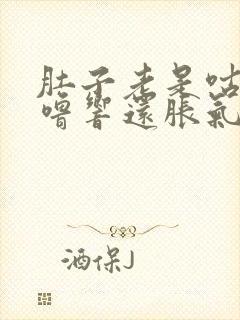 肚子老是咕
噜響還脹氣
酒保J